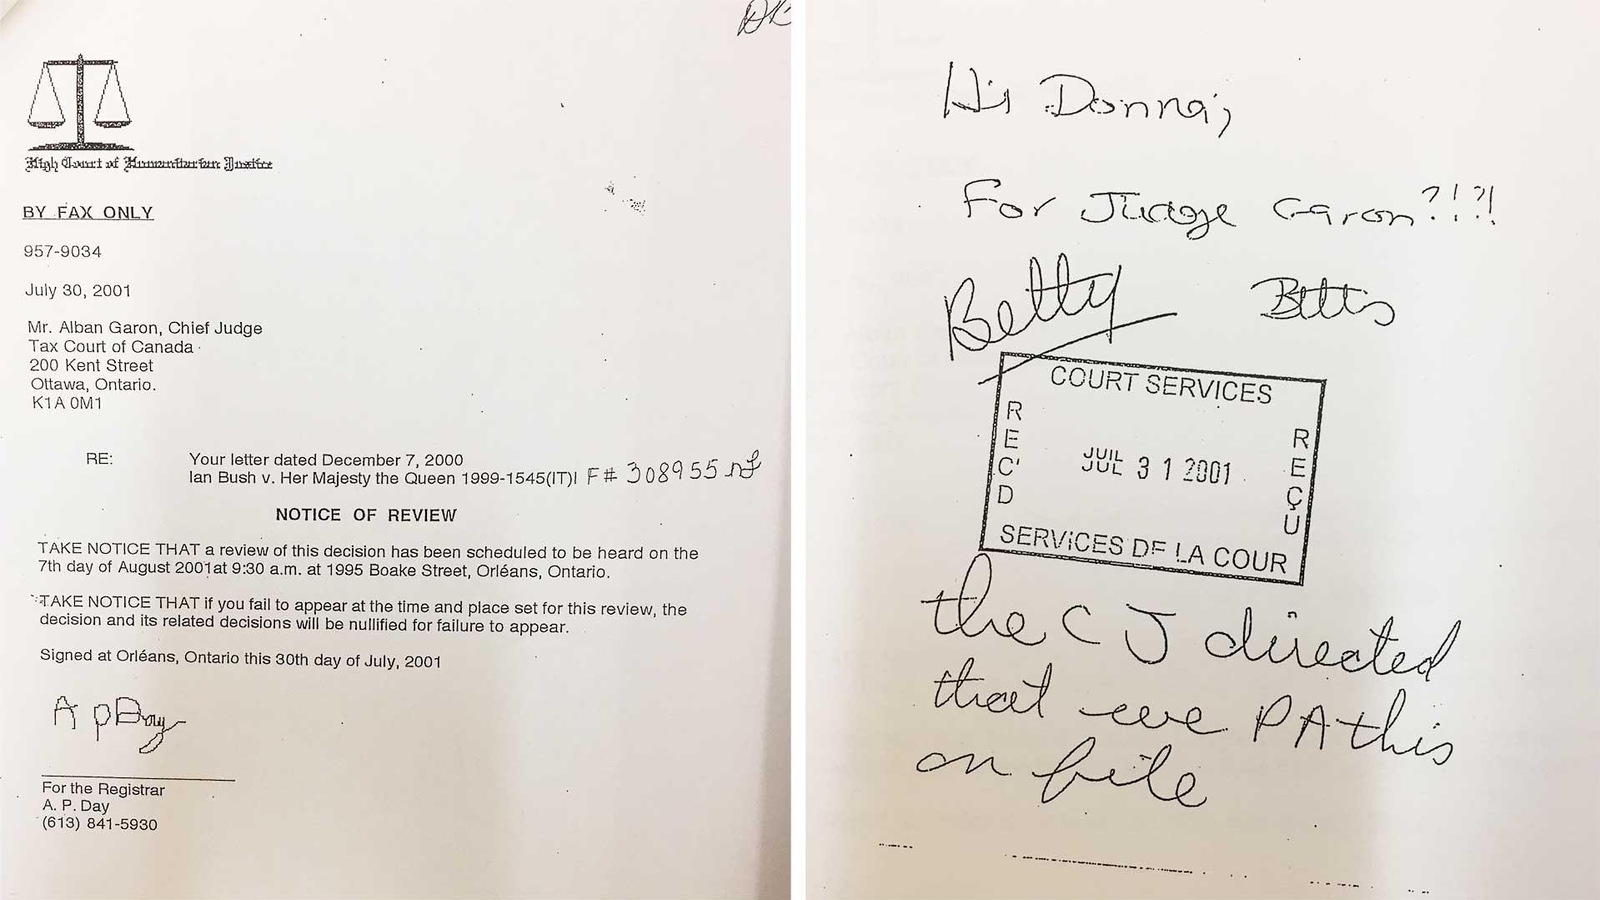 High Court of Humanitarian Justice
BY FAX ONLY
957-9034
July 30, 2001
Mr. Alban Garon, Chief Judge
Tax Court of Canada
200 Kent Street
Ottawa, Ontario.
K1A 0M1
RE: Your letter dated December 7, 2000
Ian Bush v. Her Majesty the Queen 1999-1545(IT)I F# 308955
NOTICE OF REVIEW
TAKE NOTICE THAT a review of this decision has been scheduled to be heard on the
7th day of August 2001at 9:30 a.m. at 1995 Boake Street, Orléans, Ontario.
TAKE NOTICE THAT if you fail to appear at the time and place set for this review, the
decision and its related decisions will be nullified for failure to appear.
Signed at Orléans, Ontario this 30th day of July, 2001
A P Day
For the Registrar
A. P. Day
(613) 841-5930
Hi Donna,
For Judge Garon?!?!
Betty
COURT SERVICES
REC'D
JUIL
JUL 31 2001
REÇU
SERVICES DE LA COUR
the CJ directed
that we PA this
on file